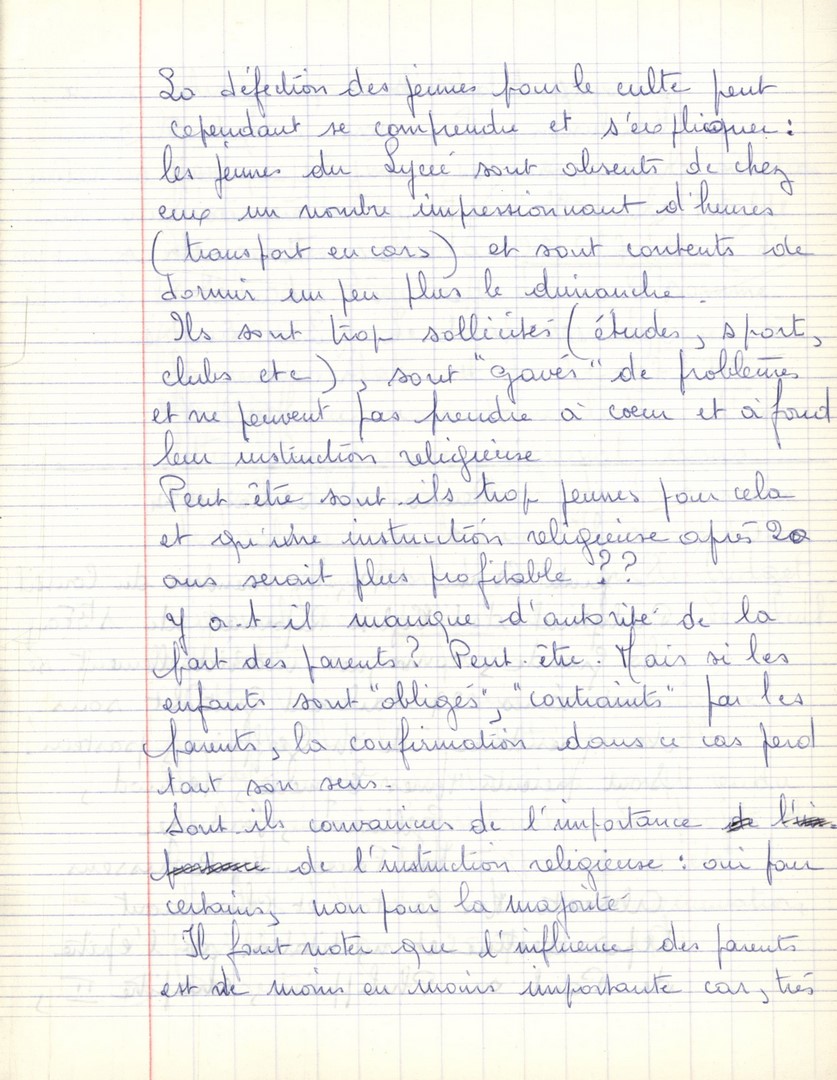 La défection des jeunes pour le culte peut
cependant se comprendre et s'expliquer :
les jeunes du Lycée sont absents de chez
eux un nombre impressionnant d'heures
(transport en cars) et sont contents de
dormir un peu plus le dimanche.
Ils sont trop sollicités (études, sport,
clubs etc), sont "gavés" de problèmes
et ne peuvent pas prendre à cœur et à fond
leur instruction religieuse
Peut-être sont-ils trop jeunes pour cela
et qu'une instruction religieuse après 20
ans serait plus profitable ??
Y a-t-il manque d'autorité de la
part des parents? Peut-être. Mais si les
enfants sont "obligés", "contraints" par les
parents, la confirmation dans ce cas perd
tout son sens.
Sont-ils convaincus de l'importance de l'im-
portance de l'instruction religieuse : oui pour
certains, non pour la majorité
Il faut noter que l'influence des parents
est de moins en moins importante car, très